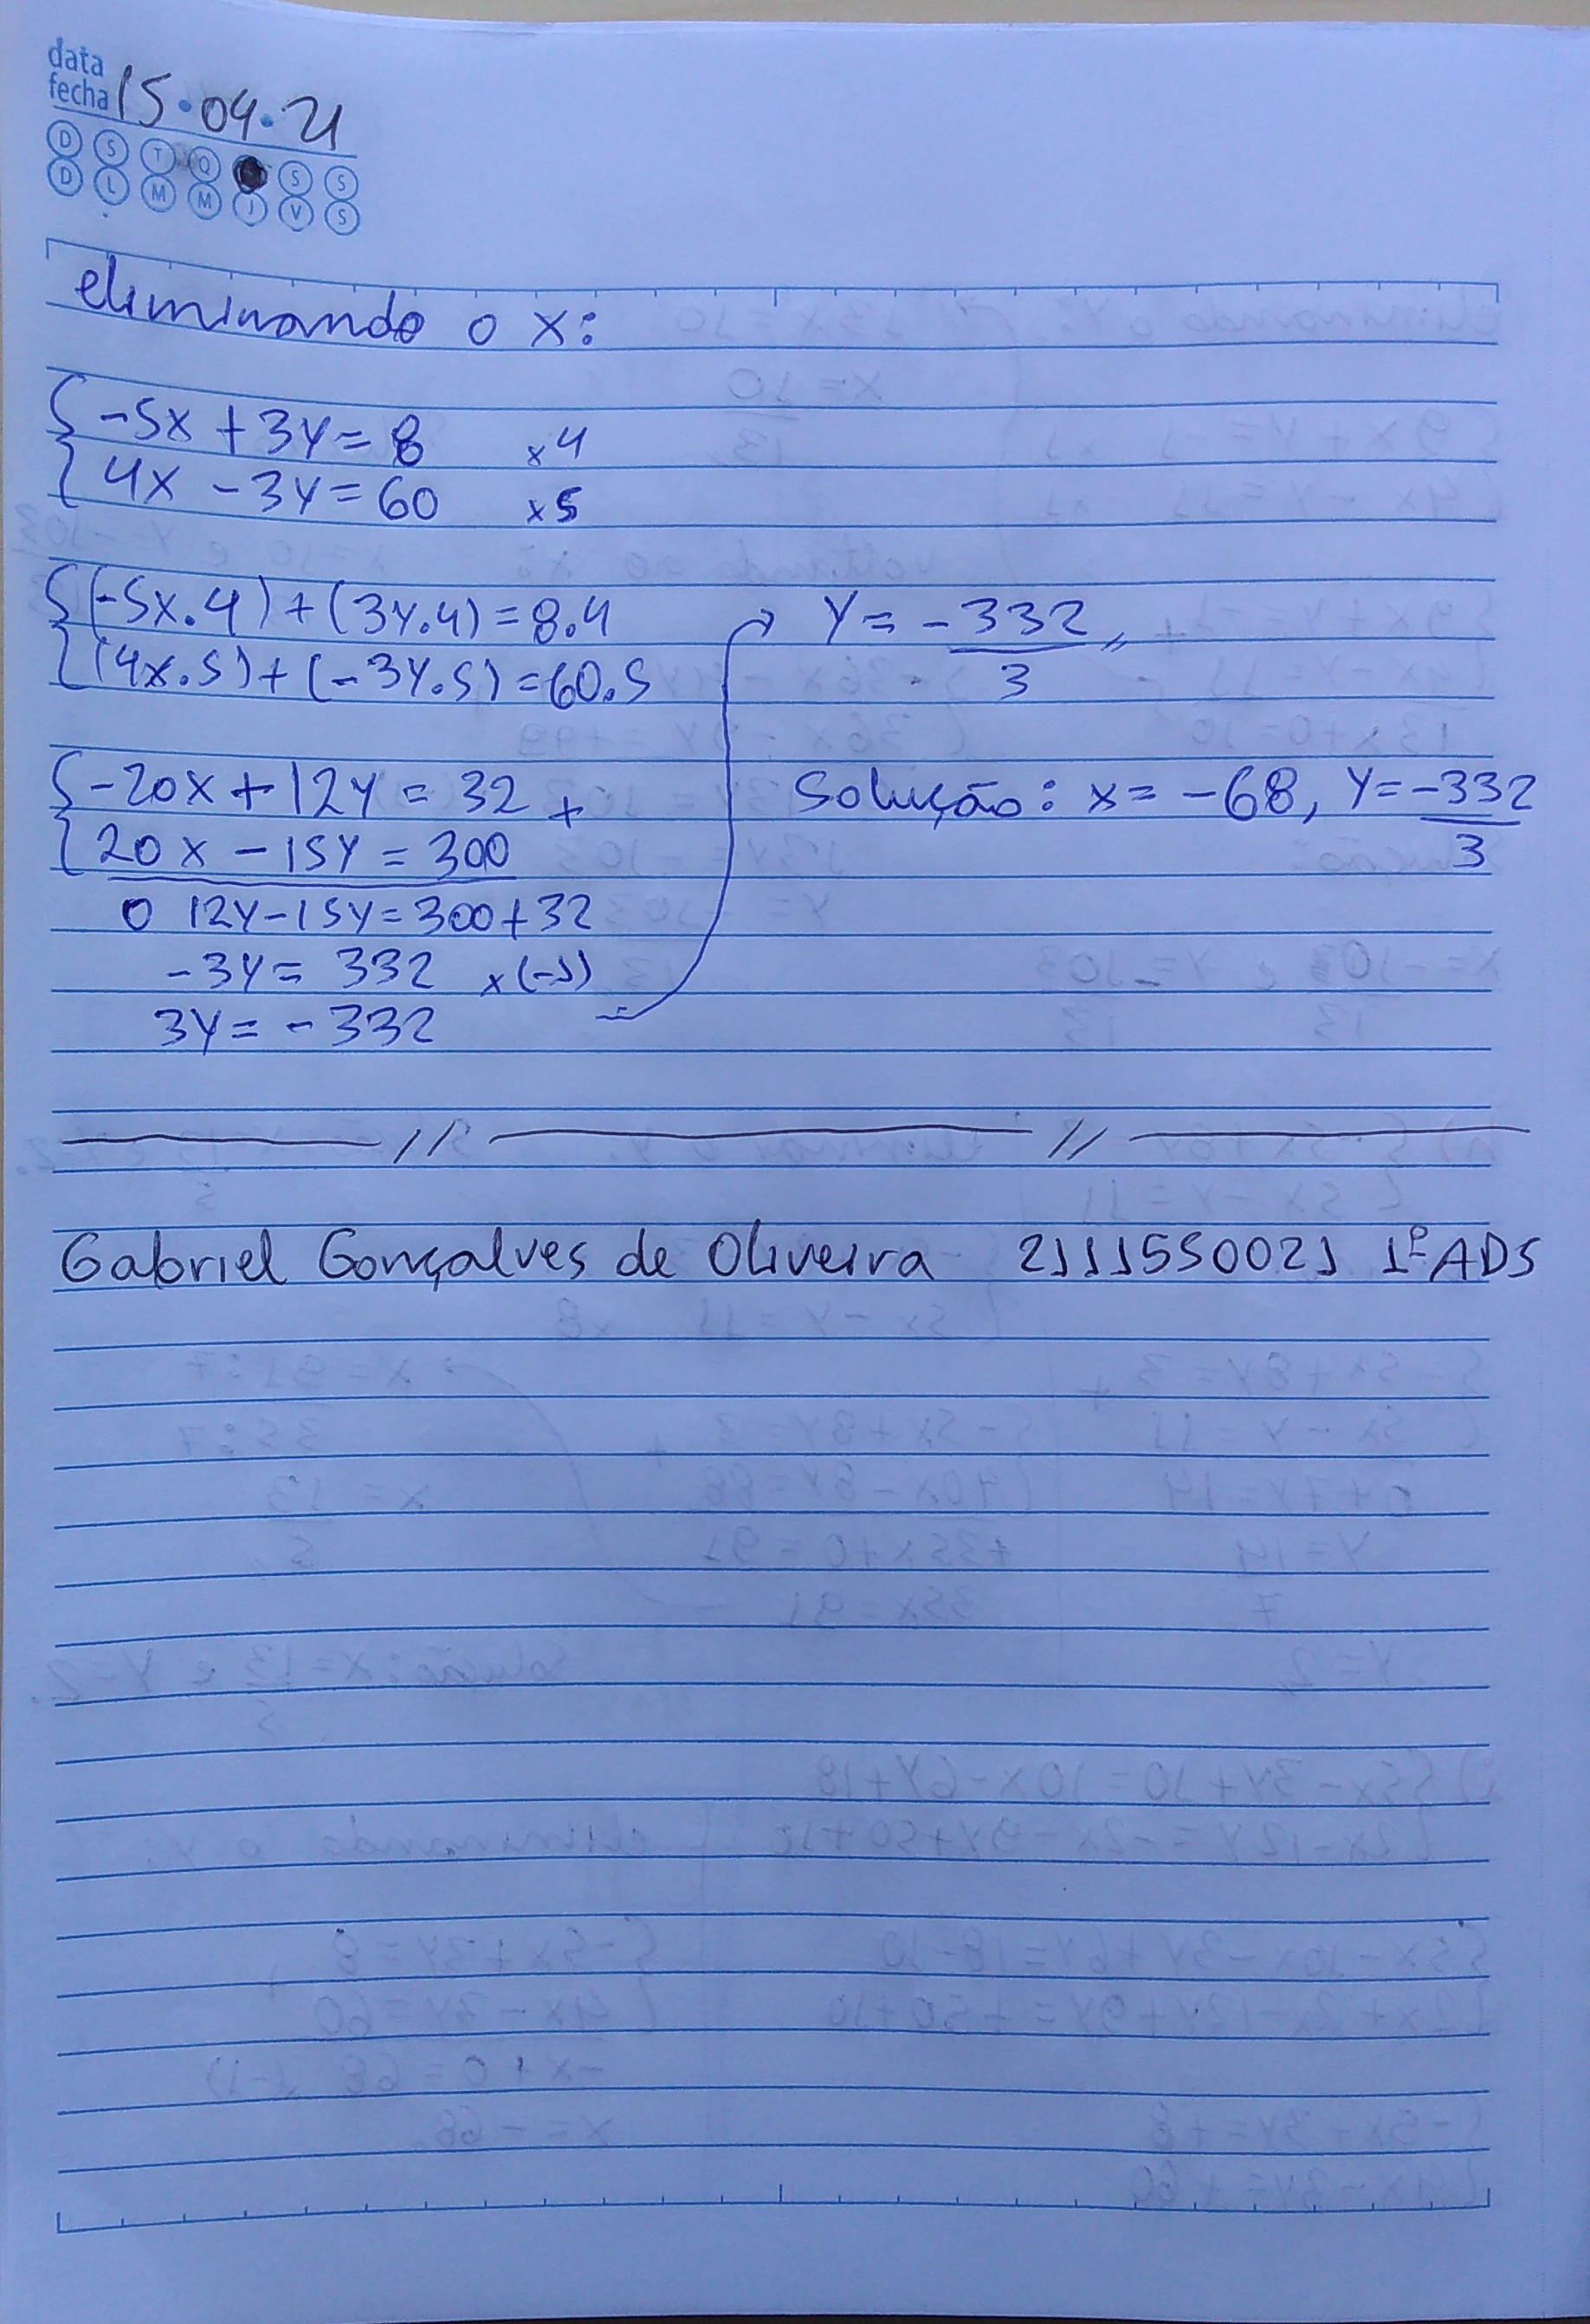 data
fecha 15.04.21
D S T Q S S
D L M M J V S
eliminando o x:
{ -5x + 3y = 8 x4
{ 4x - 3y = 60 x5
{ (-5x.4) + (3y.4) = 8.4
{ (4x.5) + (-3y.5) = 60.5
{ -20x + 12y = 32 +
{ 20x - 15y = 300
0 12y - 15y = 300 + 32
-3y = 332 x(-1)
3y = -332
→ y = -332 //
3
Solução: x = -68, y = -332
3
// //
Gabriel Gonçalves de Oliveira 2111550021 1º ADS